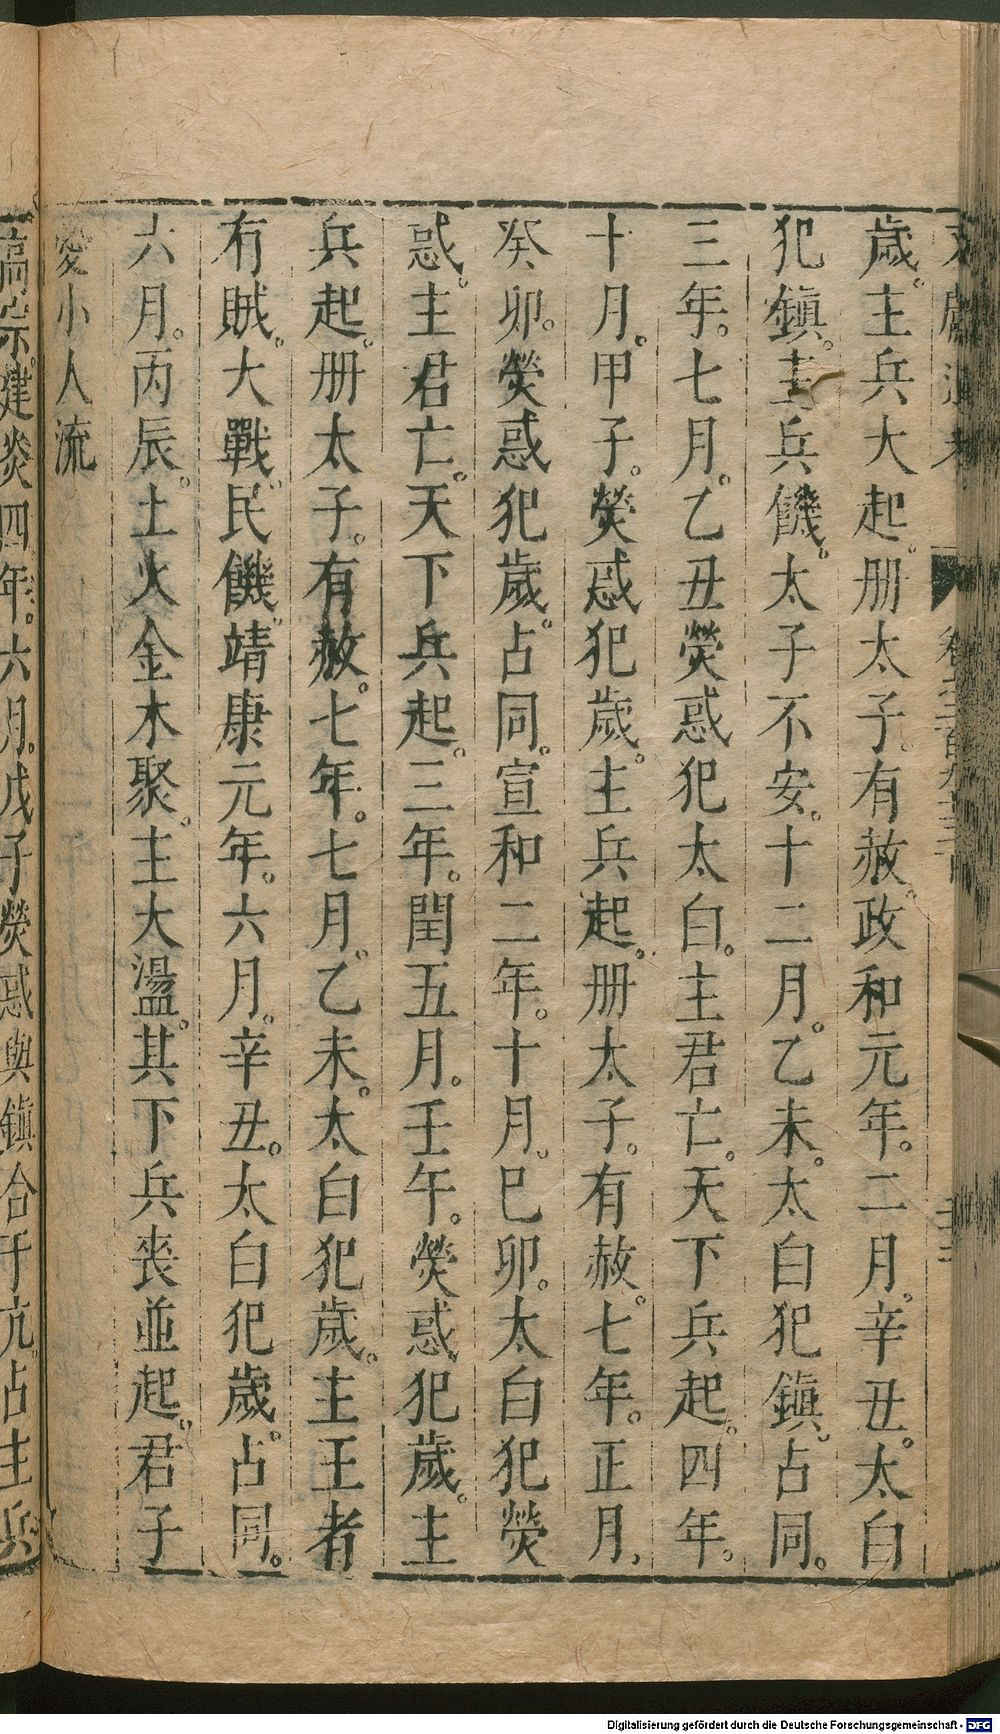 歲。主兵大起。册太子。有赦。政和元年。二月。辛丑。太白
犯鎮。主兵饑。太子不安。十二月。乙未。太白犯鎮。占同。
三年。七月。乙丑熒惑犯太白。主君亡。天下兵起。四年。
十月。甲子。熒惑犯歲。主兵起。册太子。有赦。七年。正月、
癸卯。熒惑犯歲。占同。宣和二年。十月。巳卯。太白犯熒
惑。主君亡。天下兵起。三年。閏五月。壬午。熒惑。犯歲。主
兵起。册太子。有赦。七年。七月。乙未。太白犯歲。主王者
有賊。大戰。民饑。靖康元年。六月。辛丑。太白犯歲。占同。
六月。丙辰。土火金木聚。主大盪。其下兵喪並起。君子
憂小人流
高宗。建炎四年。六月。戊子熒惑與鎮合于亢。占主兵
Digitalisierung gefördert durch die Deutsche Forschungsgemeinschaft - DFG